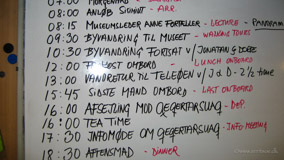 07:00 MORGENMAD
08:00 ANLØB SISIMIUT - ARR.
08:15 MUSEUMSLEDER ANNE FORTÆLLER - LECTURE - PANORAMA
09:30 BYVANDRING TIL MUSEET - WALKING TOURS
10:30 BYVANDRING FORTSAT V/ JONATAN &
12:00 FROKOST OMBORD - LUNCH ONBOARD
13:00 VANDRETUR TIL TELEØEN V/ J & D - 2½ TIME
15:45 SIDSTE MAND OMBORD - LAST ONBOARD
16:00 AFSEJLING MOD QEQERTARSUAQ - DEP.
16:00 TEA TIME
17:30 INFOMØDE OM QEQERTARSUAQ - INFO MEETING
18:30 AFTENSMAD - DINNER